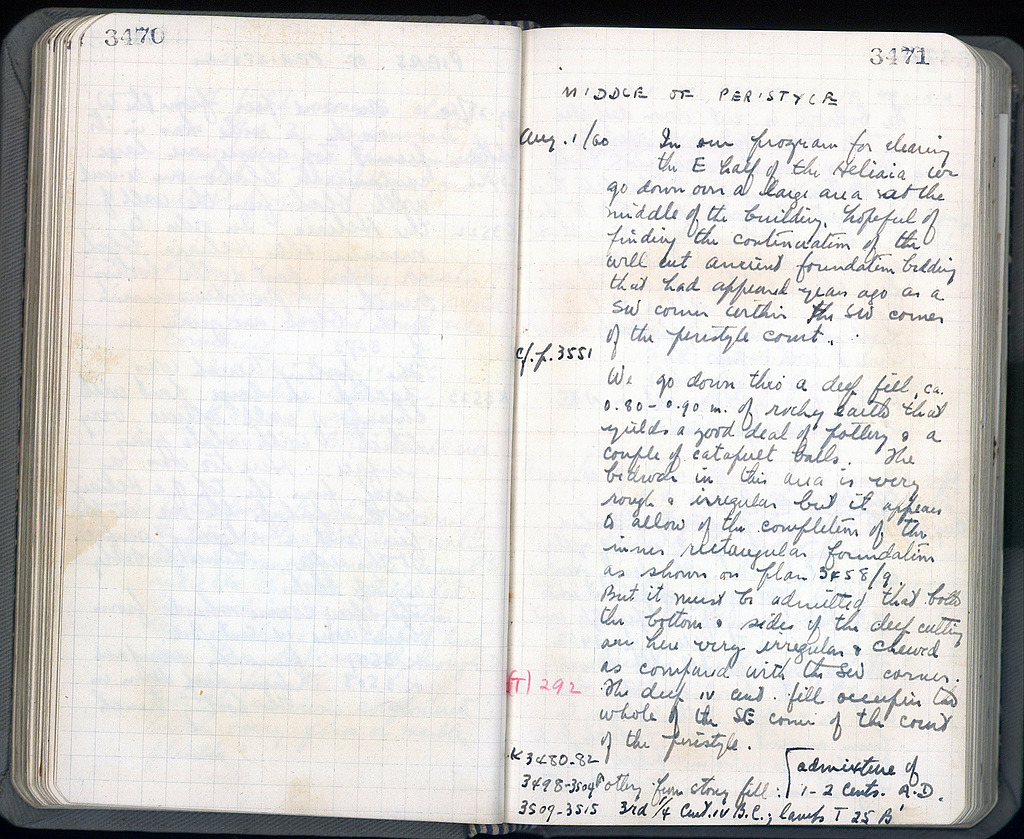 3470
3471
MIDDLE OF PERISTYLE
Aug. 1/60 In our program for clearing
the E half of the Heliaia we
go down over a large area at the
middle of the building, hopeful of
finding the continuation of the
well cut ancient foundation bedding
that had appeared years ago as a
SW corner within the SW corner
of the peristyle court.
cf. p. 3551
We go down thro a deep fill, ca.
0.80-0.90 m. of rocky earth that
yields a good deal of pottery & a
couple of catapult balls. The
bedrock in this area is very
rough & irregular but it appears
to allow of the completion of the
inner rectangular foundation
as shown on plan 3458/9.
But it must be admitted that both
the bottom & sides of the deep cutting
are here very irregular & chewed
as compared with the SW corner.
(T) 292 The deep IV cent. fill occupies the
whole of the SE corner of the court
of the peristyle.
K 3480-82
3498-3504 Pottery from stony fill: [admixture of
1-2 cents. A.D.
3509-3515 3rd 1/4 cent. IV B.C.; lamps T 25 B'